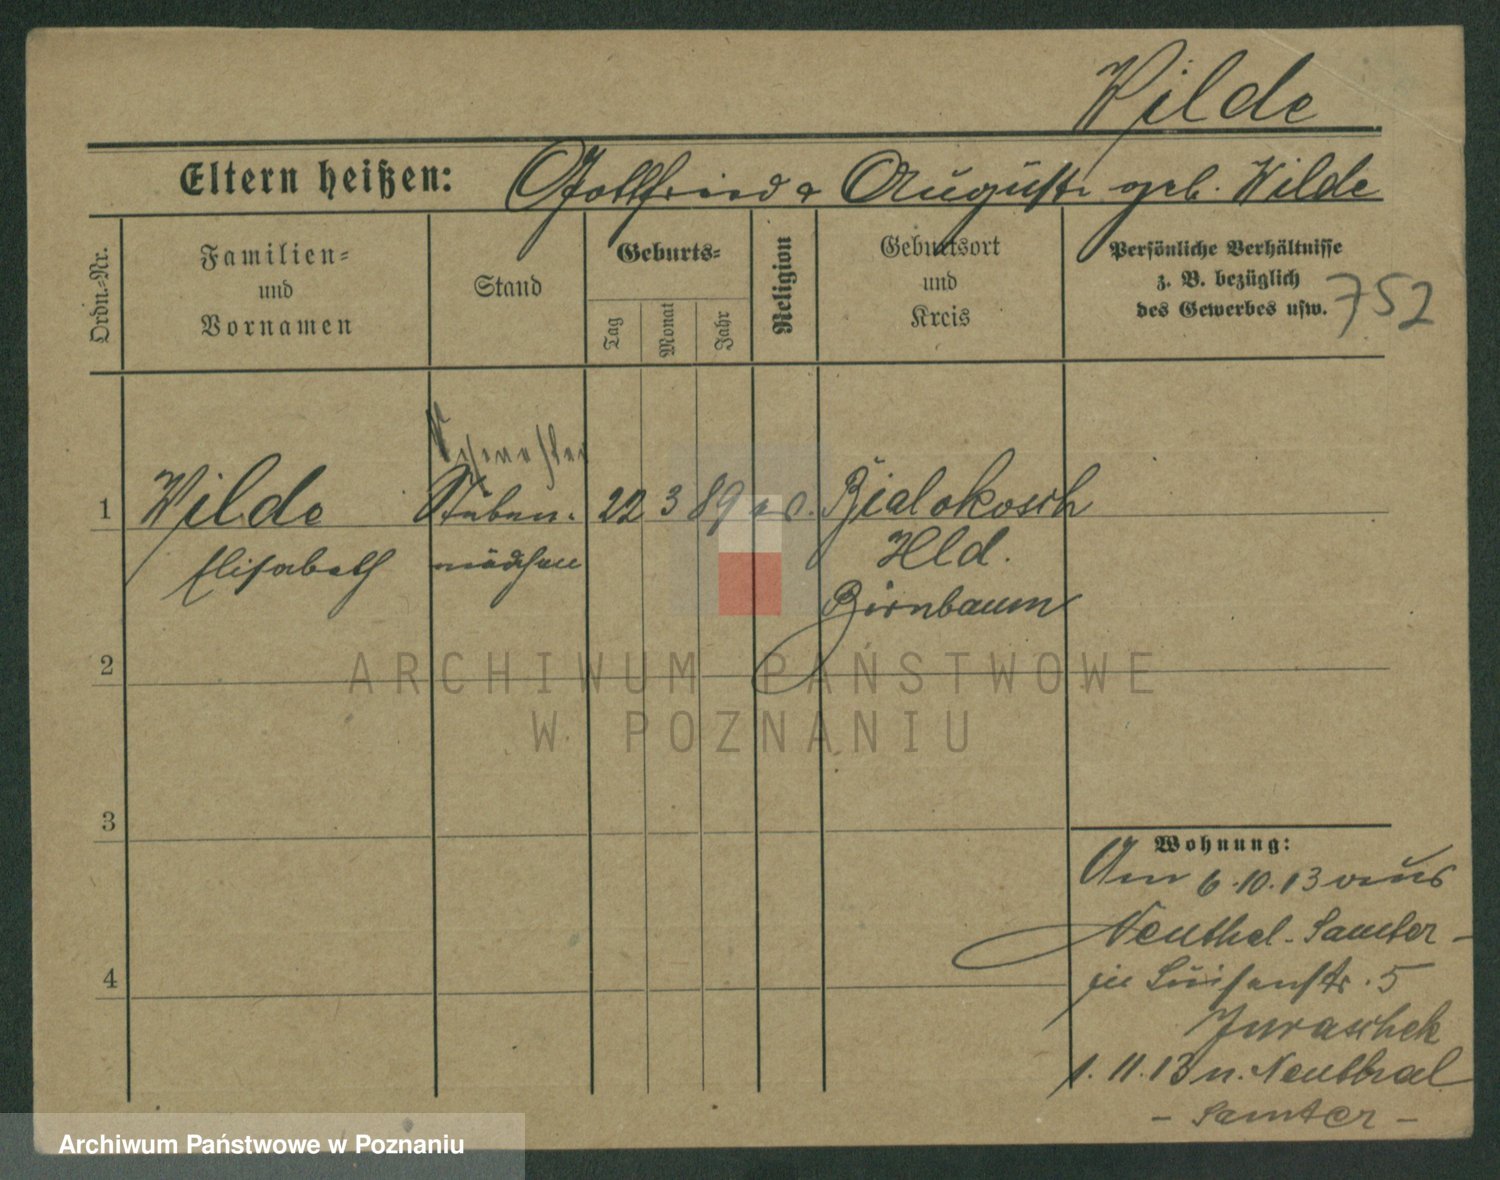 Wilde
Eltern heißen: Gottfried & Auguste geb. Wilde
Ordn.-Nr.
Familien- und Vornamen
Stand
Geburts-
Tag
Monat
Jahr
Religion
Geburtsort und Kreis
Persönliche Verhältnisse
z. B. bezüglich
des Gewerbes usw.
752
1 Wilde Stuben- 22 3 89 ev. Bialokosch
Elisabeth mädchen Hld.
Birnbaum
2
3
4
Wohnung:
Am 6.10.13 aus
Neuthal-Samter-
in Luisenstr. 5
Juraschek
1.11.13 n. Neuthal
- Samter -
ARCHIWUM PAŃSTWOWE
W POZNANIU
Archiwum Państwowe w Poznaniu